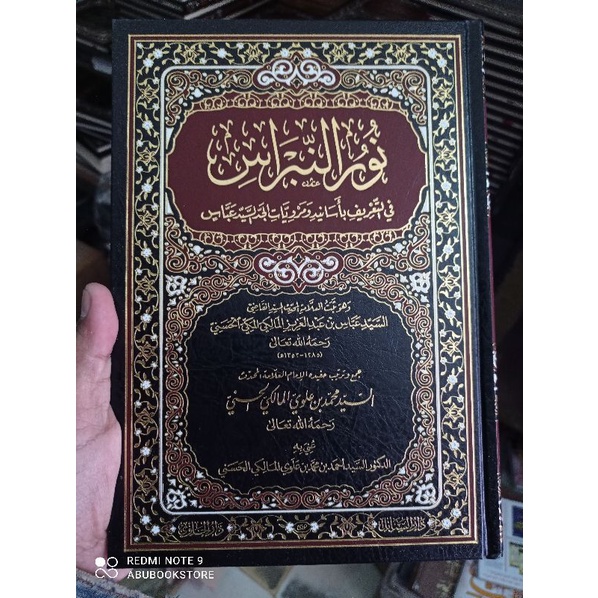 نُورُ النِّبْرَاسِ
فِي التَّعْرِيفِ بِأَسَانِيدِ وَمَرْوِيَّاتِ الجَدِّ السَّيِّدِ عَبَّاس
وَهُوَ ثَبَتُ العَلَّامَةِ المُحَدِّثِ السَّيِّدِ القَاضِي
السَّيِّدِ عَبَّاسِ بْنِ عَبْدِ العَزِيزِ المَالِكِيِّ المَكِّيِّ الحَسَنِيِّ
رَحِمَهُ اللهُ تَعَالَى
(١٢٨٥-١٣٥٣ه)
جمع وترتيب حفيده الإمام العلامة المحدث
السَّيِّد مُحَمَّد بْن عَلَوِي المَالِكِي الحَسَنِي
رَحِمَهُ اللهُ تَعَالَى
عُنِيَ بِهِ
الدكتور السَّيِّد أَحْمَد بْن مُحَمَّد بْن عَلَوِي المَالِكِي الحَسَنِي
REDMI NOTE 9
ABUBOOKSTORE